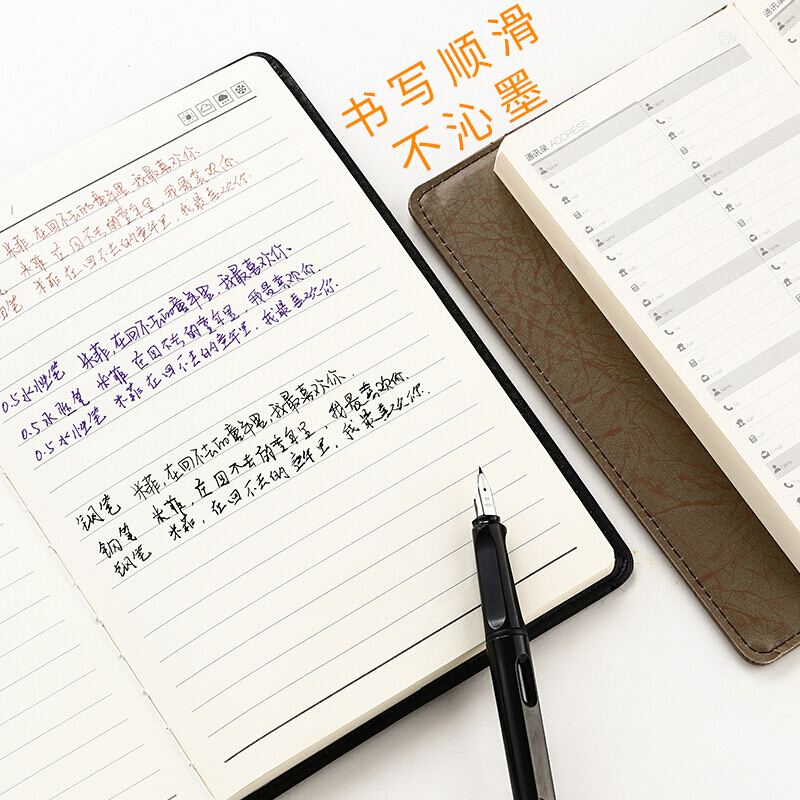 书写顺滑
不沁墨
米菲,在回不去的童年里,我最喜欢你.
米菲,在回不去的童年里,我最喜欢你.
笔 米菲 在回不去的童年里,我最喜欢你.
0.5水性笔 米菲,在回不去的童年里,我最喜欢你.
0.5水性笔 米菲 在回不去的童年里,我最喜欢你.
0.5水性笔 米菲 在回不去的童年里,我最喜欢你.
钢笔 米菲,在回不去的童年里,我最喜欢你.
钢笔 米菲,在回不去的童年里,我最喜欢你.
钢笔 米菲,在回不去的童年里,我最喜欢你.
通讯录 ADDRESS
通讯录